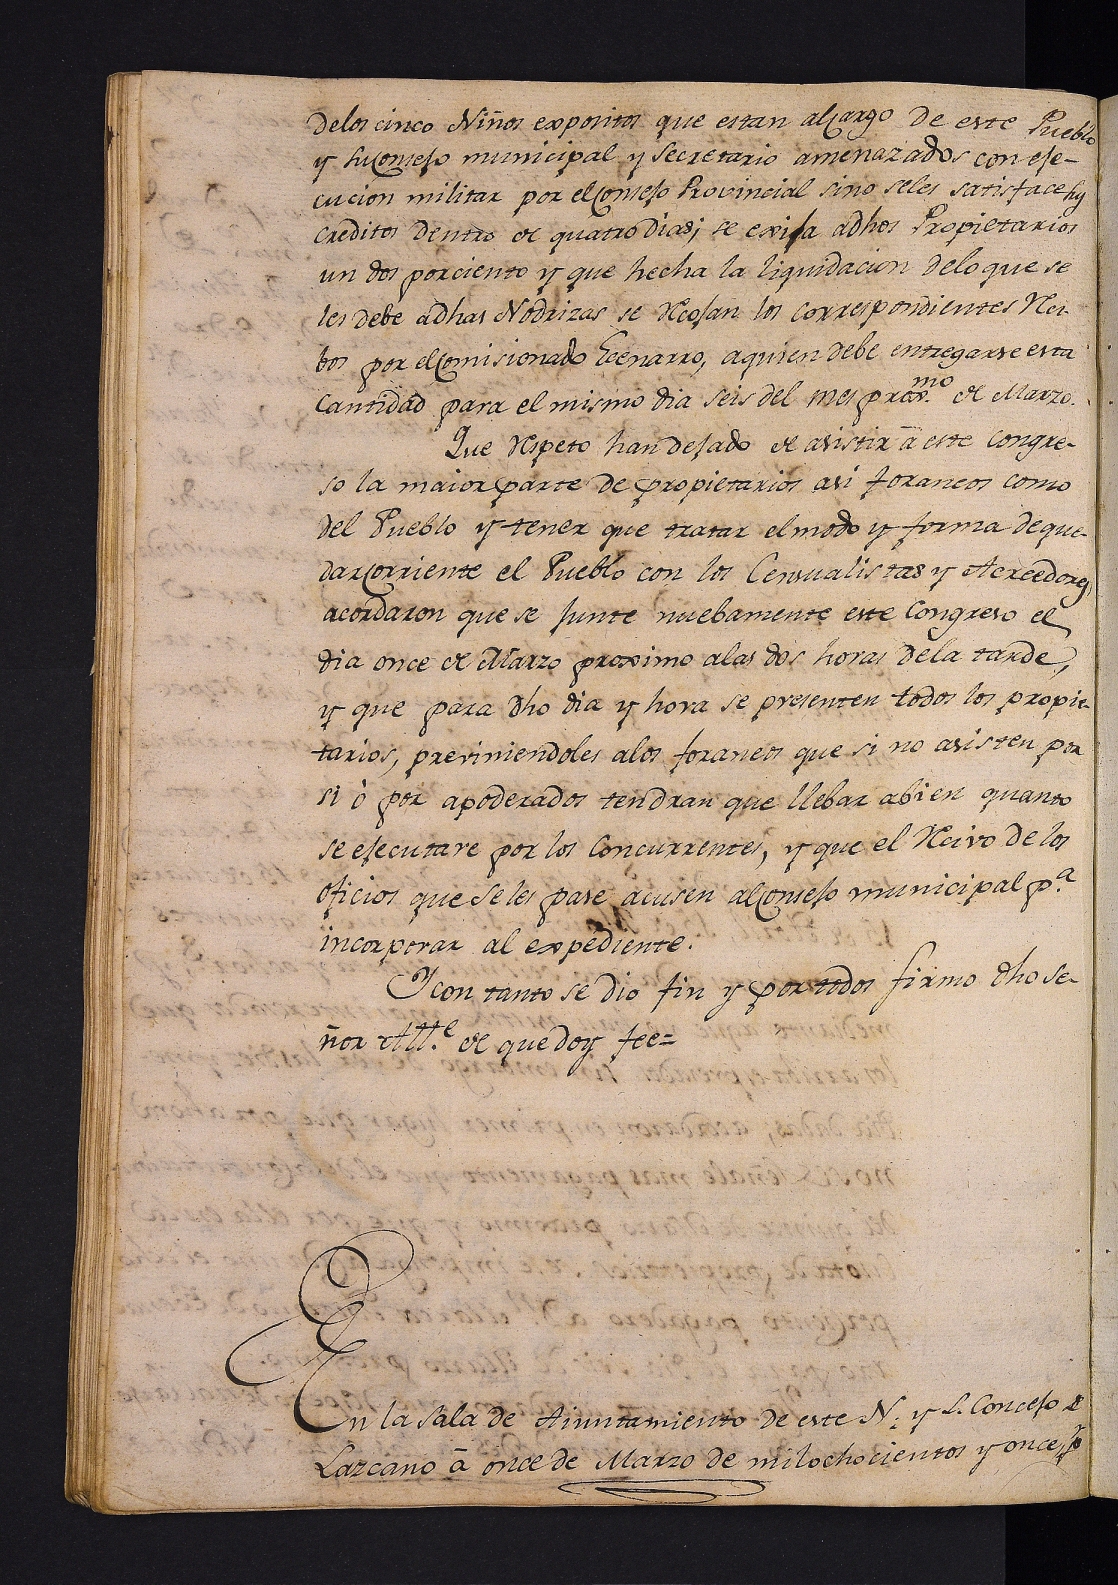 delos cinco Niños expositos que estan alcargo de este Pueblo
y su Consejo municipal y secretario amenazados con eje-
cucion militar por el Consejo Provincial sino seles satisface sus
creditos dentro de quatro dias; se exija adhos Propietarios
un dos porciento y que hecha la liquidacion delo que se
les debe adhas Nodrizas se Recojan los correspondientes Rei-
bos por el Comisionado Ecenarro, aquien debe entregarse esta
cantidad para el mismo dia seis del mes prox.mo de Marzo.
Que Respeto han dejado de asistir â este congre-
so la maior parte de propietarios asi foraneos como
del Pueblo y tener que tratar el modo y forma de que-
dar corriente el Pueblo con los Censualistas y Acreedores,
acordaron que se junte nuebamente este Congreso el
dia once de Marzo proximo alas dos horas dela tarde,
y que para dho dia y hora se presenten todos los propie-
tarios, previniendoles alos foraneos que si no asisten por
si ò por apoderados tendran que llebar abien quanto
se ejecutare por los Concurrentes, y que el Recivo de los
oficios que seles pase acusen al Consejo municipal p.a
incorporar al expediente.
Y con tanto se dio fin y por todos firmo dho se-
ñor Alt.e de que doy fee=
En la sala de Aiuntamiento de este N. y L. Concejo de
Lazcano â once de Marzo de mil ochocientos y once,